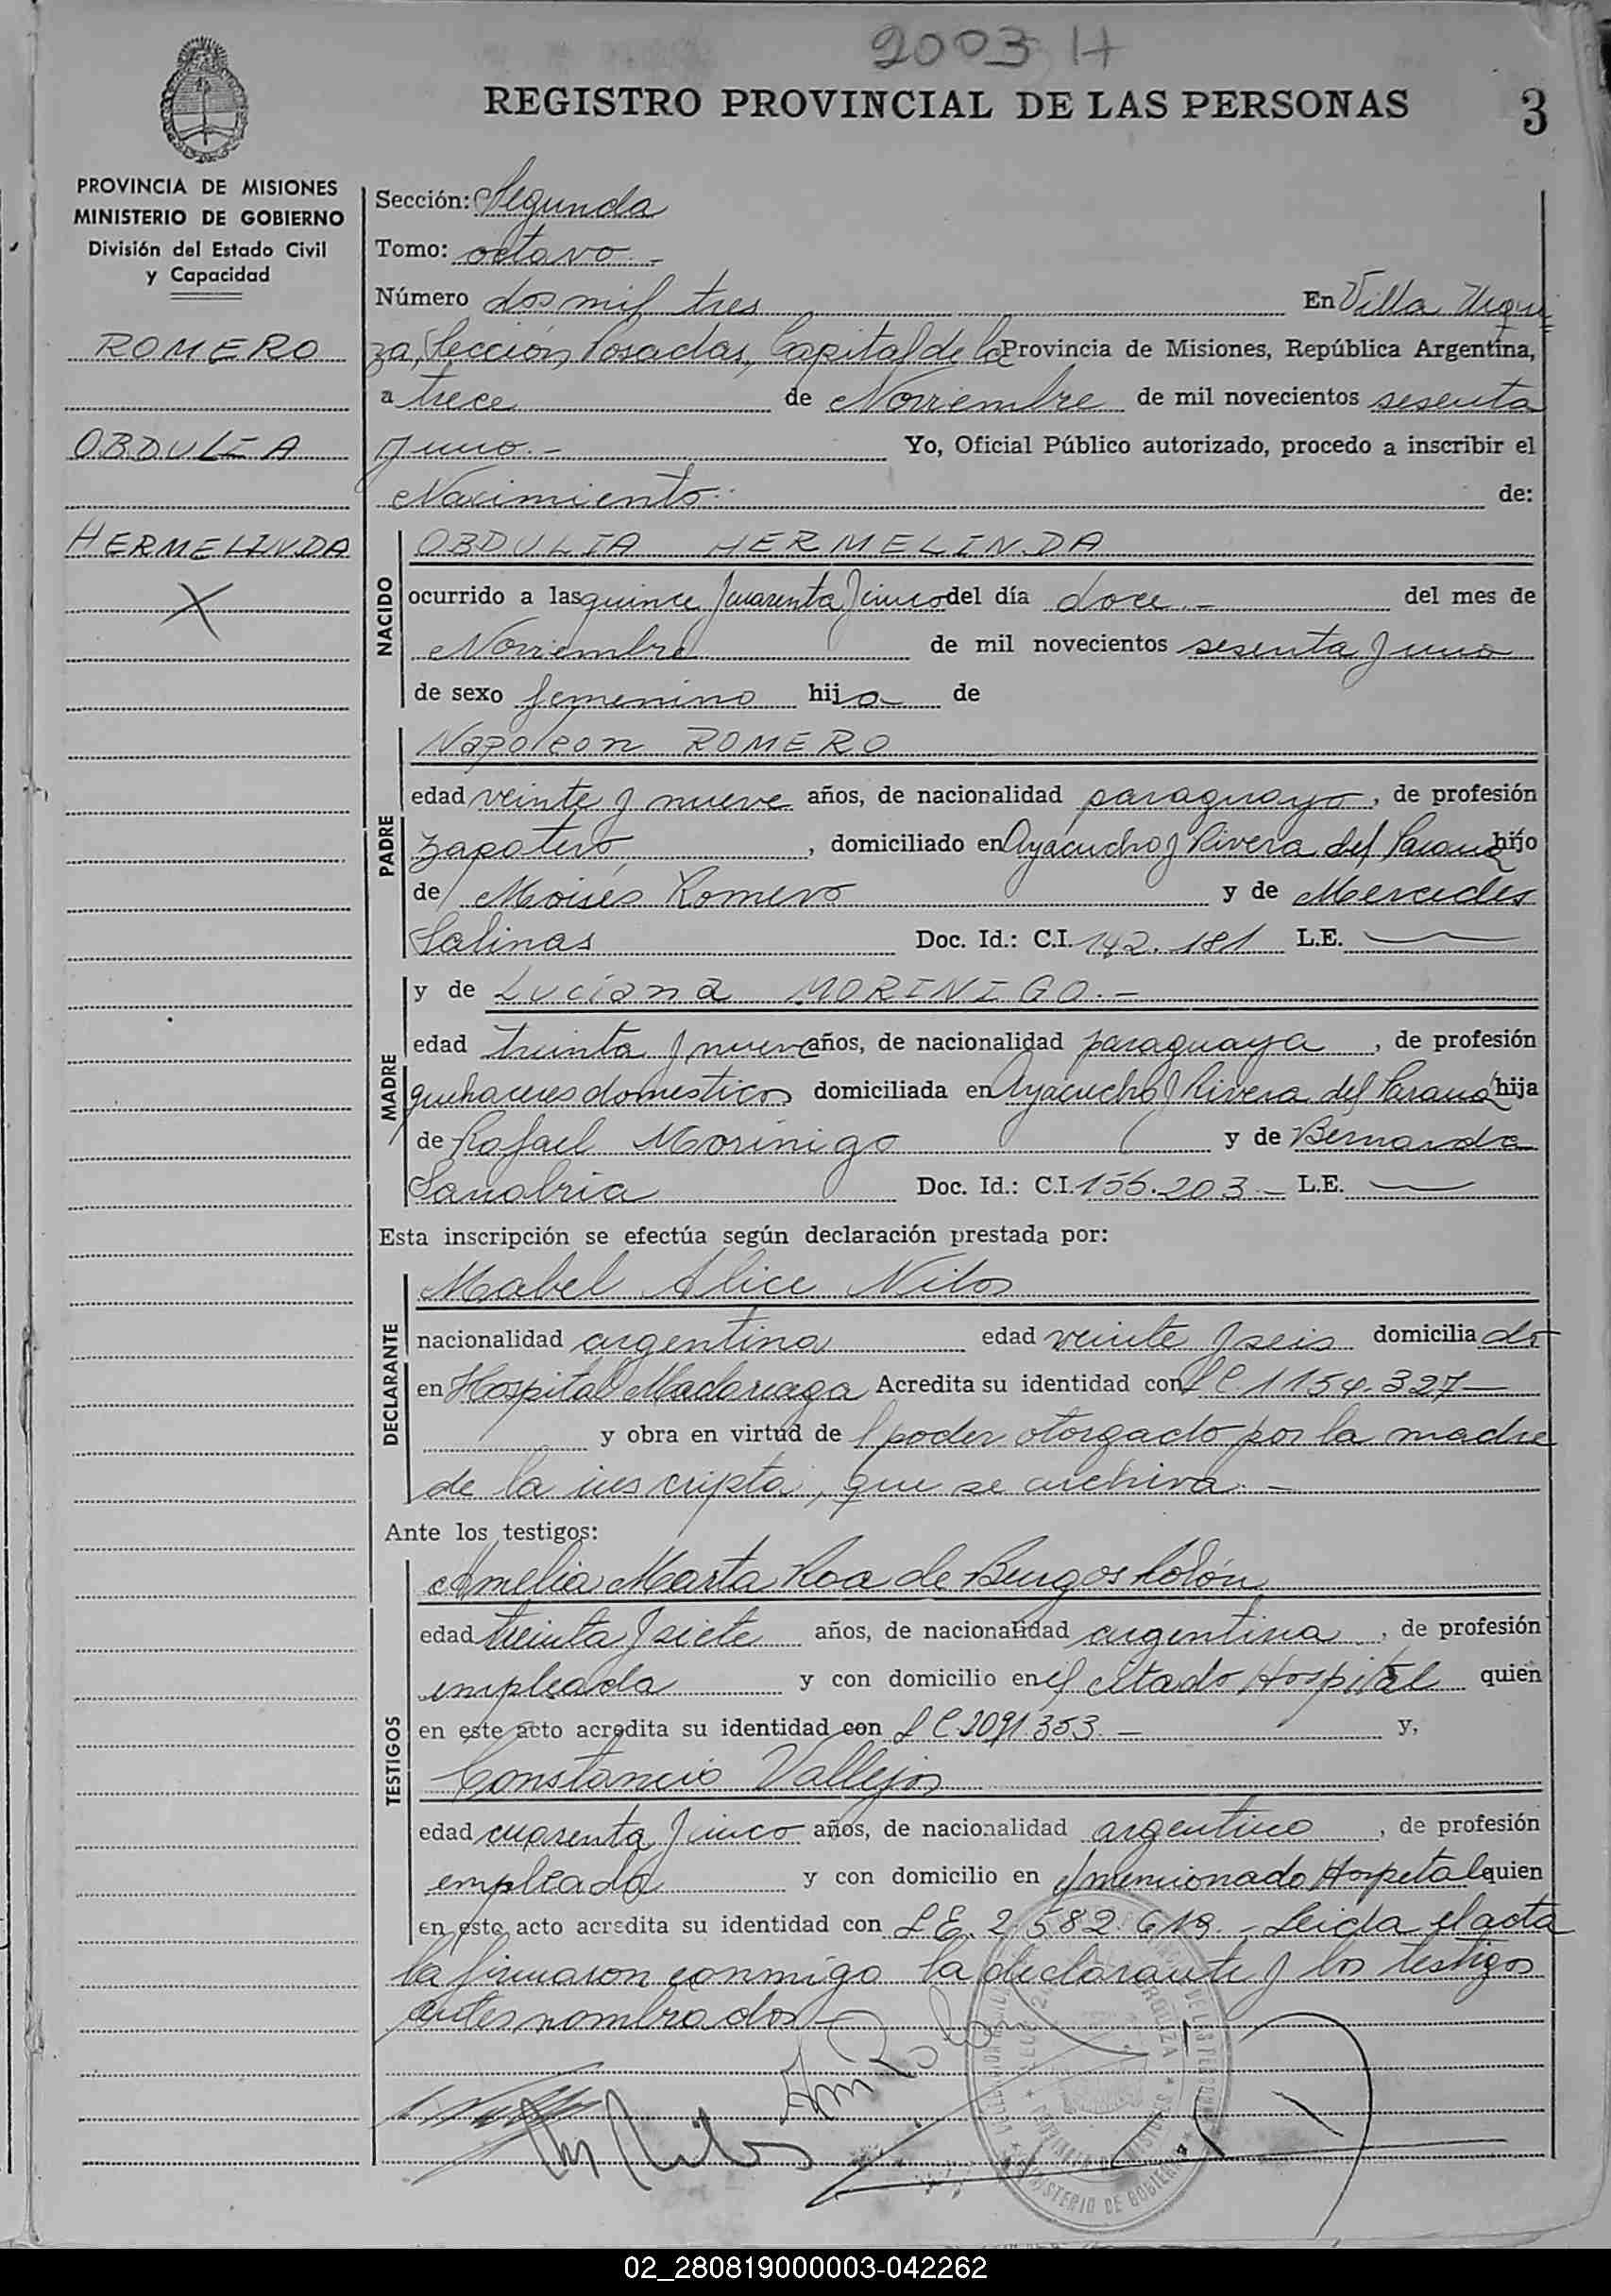 2003 H
REGISTRO PROVINCIAL DE LAS PERSONAS
3
PROVINCIA DE MISIONES
MINISTERIO DE GOBIERNO
División del Estado Civil
y Capacidad
ROMERO
OBDULIA
HERMELINDA
X
Sección: Segunda
Tomo: octavo.-
Número dos mil tres En Villa Urqui=
za, Sección, Posadas, Capital de la Provincia de Misiones, República Argentina,
a trece de Noviembre de mil novecientos sesenta
y uno.- Yo, Oficial Público autorizado, procedo a inscribir el
Nacimiento.- de:
NACIDO
OBDULIA HERMELINDA
ocurrido a las quince y cuarenta y cinco del día doce.- del mes de
Noviembre de mil novecientos sesenta y uno
de sexo femenino hija de
PADRE
Napoleon ROMERO
edad veinte y nueve años, de nacionalidad paraguayo, de profesión
zapatero, domiciliado en Ayacucho y Rivera del Paraná hijo
de Moisés Romero y de Mercedes
Salinas Doc. Id.: C.I. 142.181 L.E.
MADRE
y de Luciana MORINIGO.-
edad treinta y nueve años, de nacionalidad paraguaya, de profesión
quehaceres domesticos domiciliada en Ayacucho y Rivera del Paraná hija
de Rafael Morinigo y de Bernarda
Sanabria Doc. Id.: C.I. 155.203.- L.E.
Esta inscripción se efectúa según declaración prestada por:
DECLARANTE
Mabel Alice Nilos
nacionalidad argentina edad veinte y seis domiciliado
en Hospital Madariaga Acredita su identidad con L C. 1154.327-
y obra en virtud del poder otorgado por la madre
de la inscripta, que se archiva.-
Ante los testigos:
TESTIGOS
Amelia Marta Roa de Burgos Colón
edad treinta y siete años, de nacionalidad argentina, de profesión
empleada y con domicilio en el citado Hospital quien
en este acto acredita su identidad con L C. 2091.353.- y,
Constancio Vallejos
edad cuarenta y cinco años, de nacionalidad argentino, de profesión
empleado y con domicilio en el mencionado Hospital quien
en este acto acredita su identidad con L E. 2.582.619.- Leida el acta
la firmaron conmigo la declarante y los testigos
antes nombrados-
MINISTERIO DE GOBIERNO
02_280819000003-042262